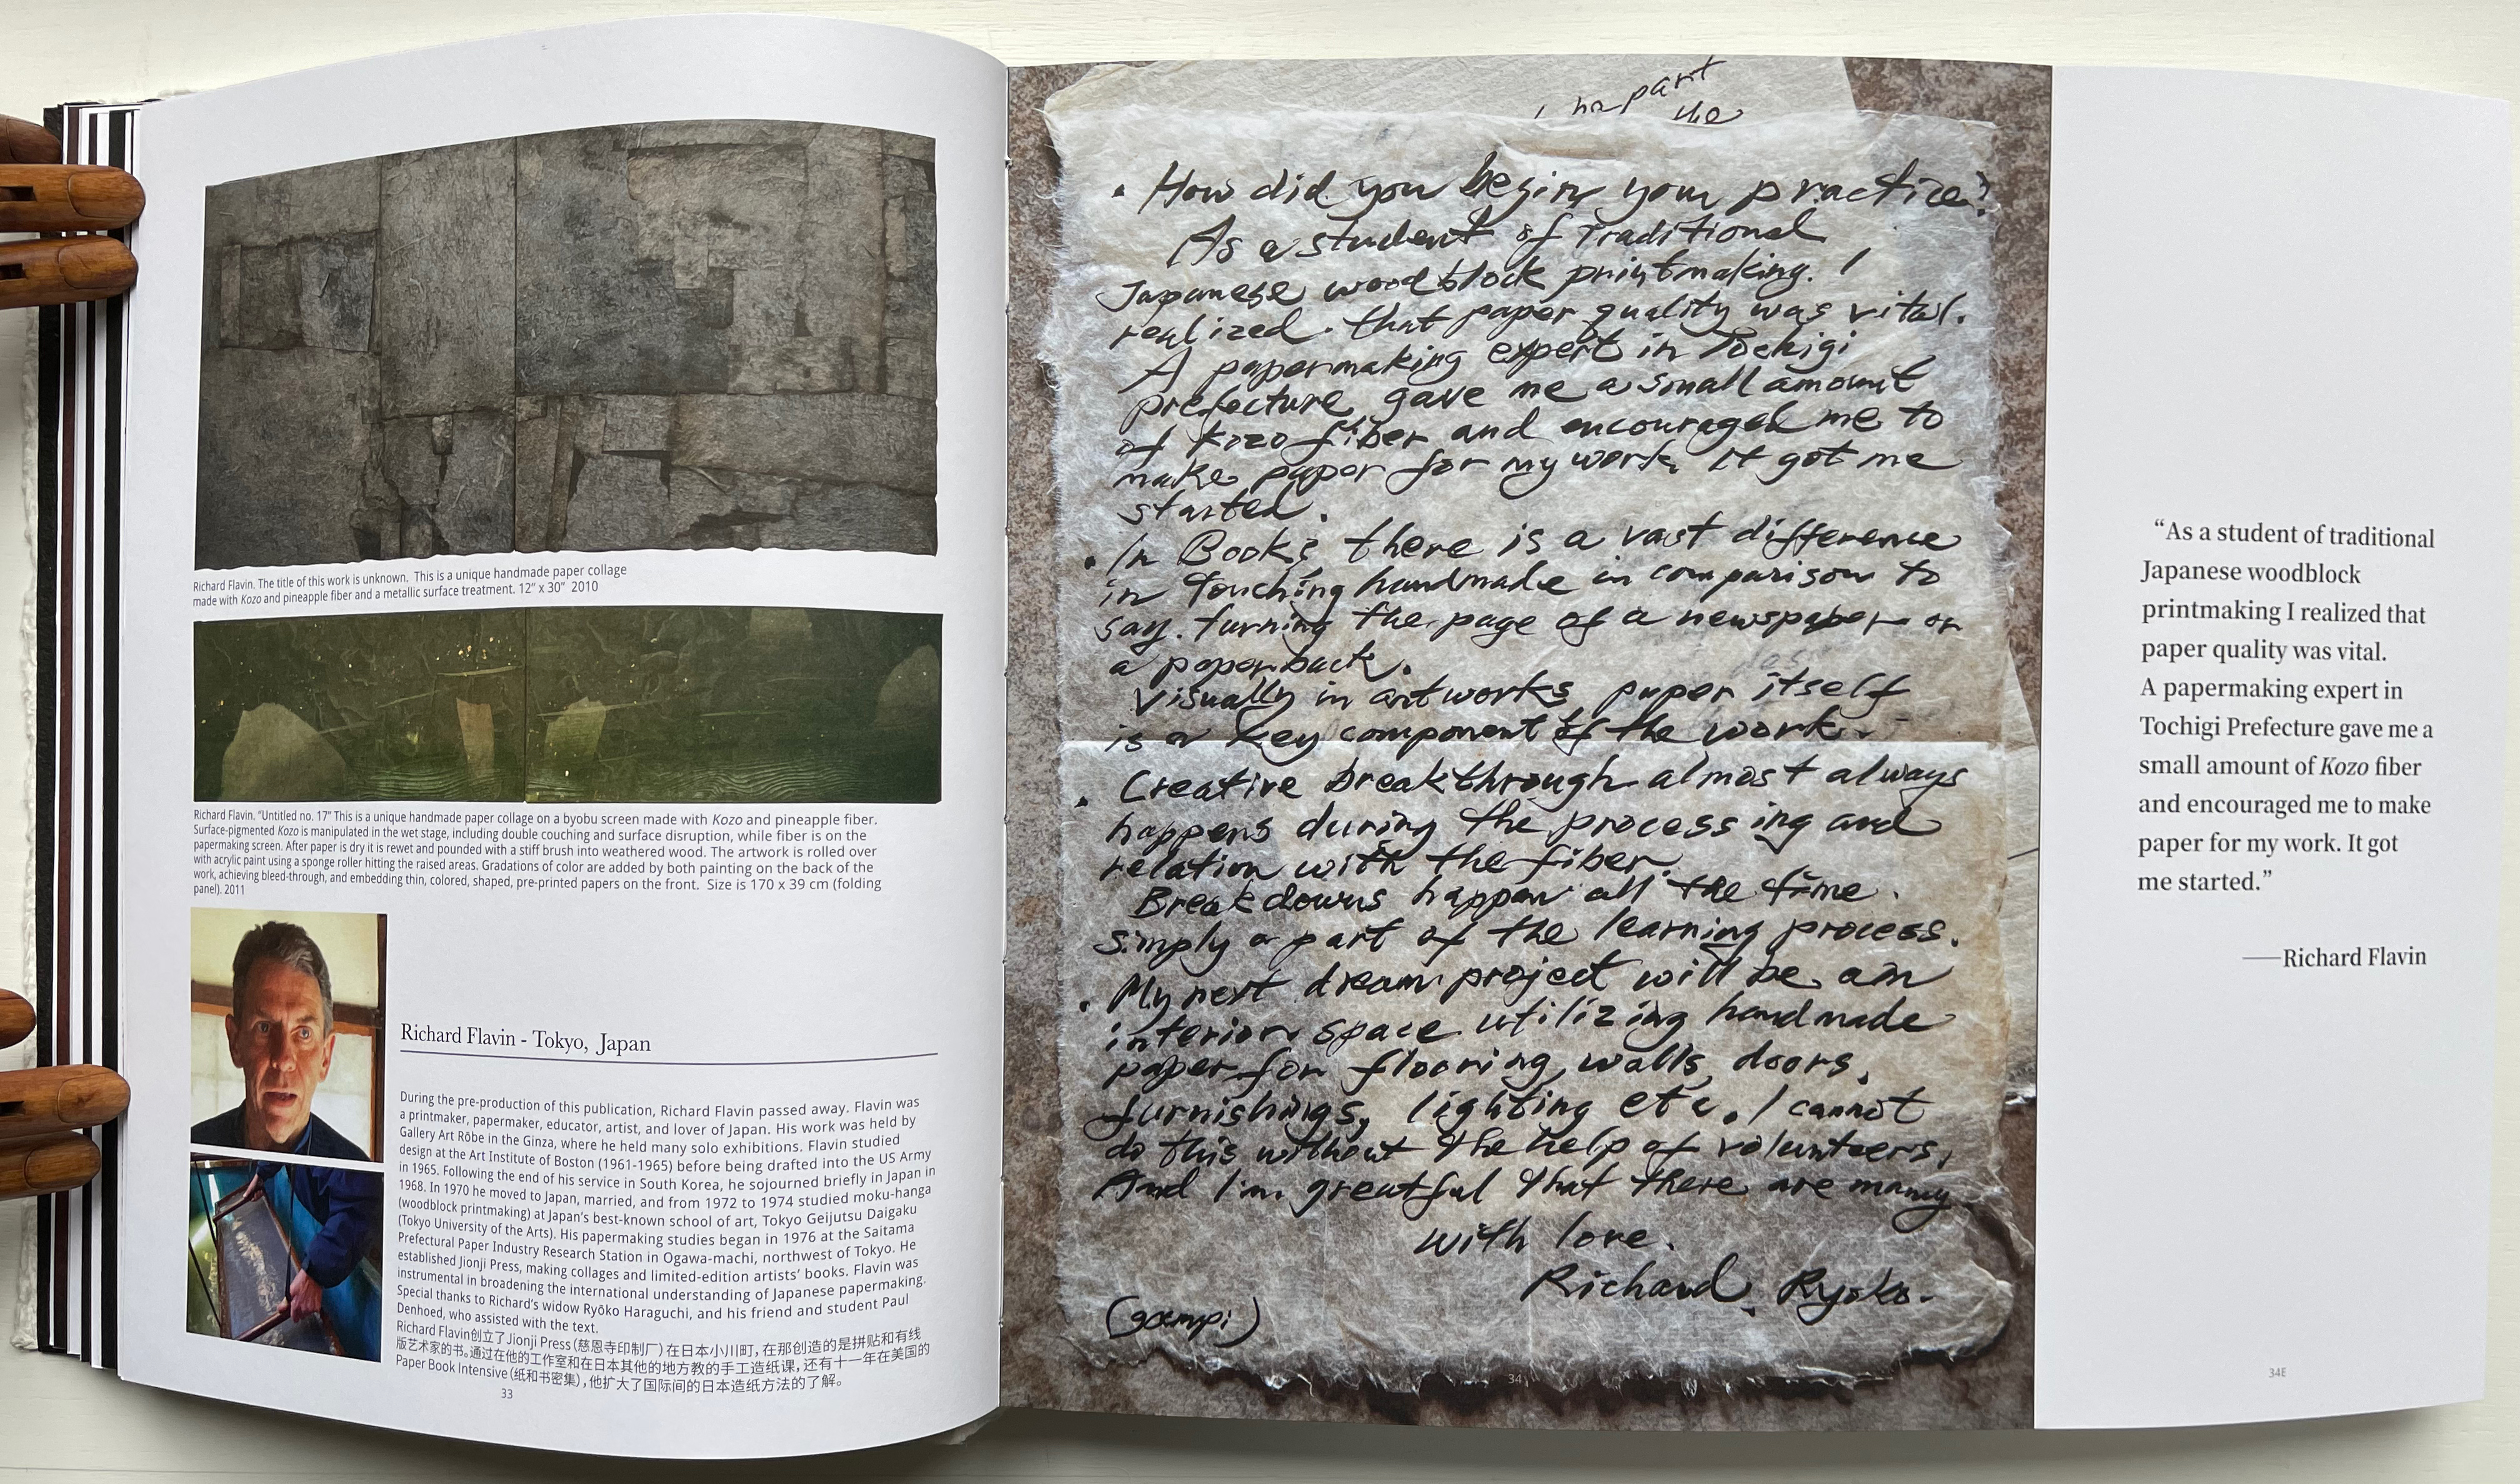 Richard Flavin. The title of this work is unknown. This is a unique handmade paper collage
made with Kozo and pineapple fiber and a metallic surface treatment. 12" x 30" 2010
Richard Flavin. "Untitled no. 17" This is a unique handmade paper collage on a byobu screen made with Kozo and pineapple fiber.
Surface-pigmented Kozo is manipulated in the wet stage, including double couching and surface disruption, while fiber is on the
papermaking screen. After paper is dry it is rewet and pounded with a stiff brush into weathered wood. The artwork is rolled over
with acrylic paint using a sponge roller hitting the raised areas. Gradations of color are added by both painting on the back of the
work, achieving bleed-through, and embedding thin, colored, shaped, pre-printed papers on the front. Size is 170 x 39 cm (folding
panel). 2011
Richard Flavin - Tokyo, Japan
During the pre-production of this publication, Richard Flavin passed away. Flavin was
a printmaker, papermaker, educator, artist, and lover of Japan. His work was held by
Gallery Art Rōbe in the Ginza, where he held many solo exhibitions. Flavin studied
design at the Art Institute of Boston (1961-1965) before being drafted into the US Army
in 1965. Following the end of his service in South Korea, he sojourned briefly in Japan in
1968. In 1970 he moved to Japan, married, and from 1972 to 1974 studied moku-hanga
(woodblock printmaking) at Japan's best-known school of art, Tokyo Geijutsu Daigaku
(Tokyo University of the Arts). His papermaking studies began in 1976 at the Saitama
Prefectural Paper Industry Research Station in Ogawa-machi, northwest of Tokyo. He
established Jionji Press, making collages and limited-edition artists' books. Flavin was
instrumental in broadening the international understanding of Japanese papermaking.
Special thanks to Richard's widow Ryōko Haraguchi, and his friend and student Paul
Denhoed, who assisted with the text.
Richard Flavin创立了Jionji Press(慈恩寺印制厂)在日本小川町,在那创造的是拼贴和有线
版艺术家的书。通过在他的工作室和在日本其他的地方教的手工造纸课,还有十一年在美国的
Paper Book Intensive(纸和书密集),他扩大了国际间的日本造纸方法的了解。
33
part
the
• How did you begin your practice?
As a student of Traditional
Japanese woodblock printmaking. I
realized that paper quality was vital.
A papermaking expert in Tochigi
prefecture gave me a small amount
of Kozo fiber and encouraged me to
make paper for my work. It got me
started.
• In Books there is a vast difference
in Touching handmade in comparison to
say. turning the page of a newspaper or
a paperback.
Visually in artworks paper itself
is a key component of the work.
• Creative breakthrough almost always
happens during the processing and
relation with the fiber.
Breakdowns happen all the time.
simply a part of the learning process.
• My next dream project will be an
interior space utilizing handmade
paper for flooring, walls, doors,
furnishings, lighting etc. I cannot
do this without the help of volunteers,
And I'm greatful that there are many
with love.
Richard. Ryoko.
(gampi)
34
"As a student of traditional
Japanese woodblock
printmaking I realized that
paper quality was vital.
A papermaking expert in
Tochigi Prefecture gave me a
small amount of Kozo fiber
and encouraged me to make
paper for my work. It got
me started."
——Richard Flavin
34E